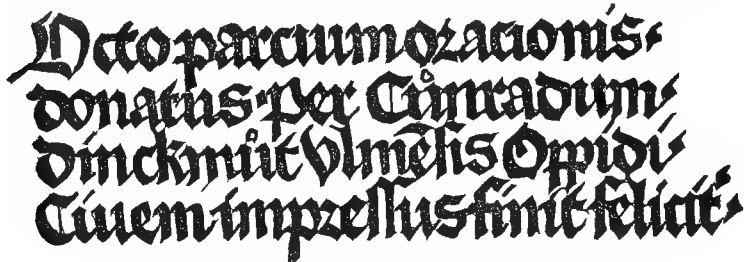 Octo parcium oracionis⸗
donatus· Per Cůnradum⸗
dinckmůt Vlmēsis Oppidi⸗
Ciuem impressus finit felicit̾⸗